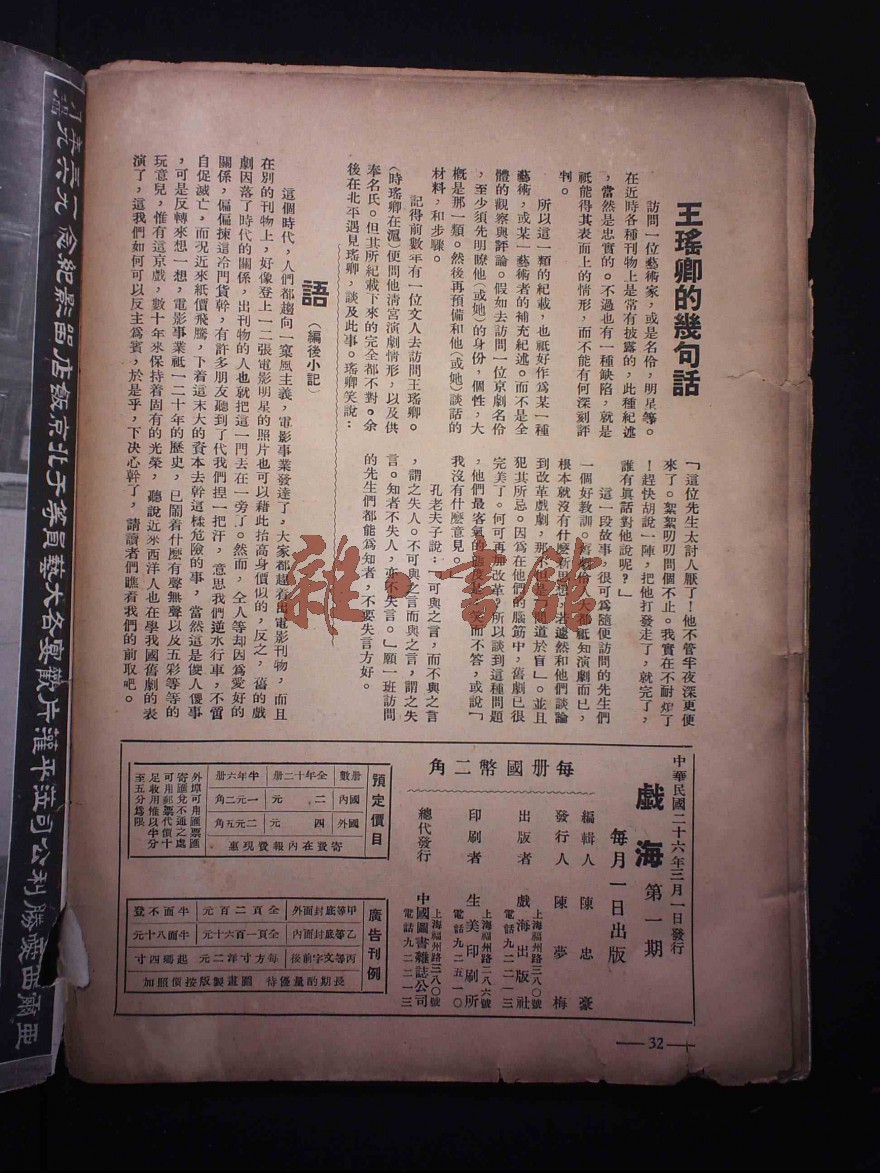 王瑤卿的幾句話
訪問一位藝術家，或是名伶，明星等。
在近時各種刊物上是常有披露的，此種紀述
，當然是忠實的。不過也有一種缺陷，就是
祇能得其表面上的情形，而不能有何深刻評
判。
所以這一類的紀載，也祇好作爲某一種
藝術，或某一藝術者的補充紀述。而不是全
體的觀察與評論。假如去訪問一位京劇名伶
，至少須先明瞭他（或她）的身份，個性，大
概是那一類。然後再預備和他（或她）談話的
材料，和步驟。
記得前數年有一位文人去訪問王瑤卿。
（時瑤卿在滬）便問他清宮演劇情形，以及供
奉名氏。但其所紀載下來的完全都不對。余
後在北平遇見瑤卿，談及此事。瑤卿笑說：
「這位先生太討人厭了！他不管半夜深更便
來了。絮絮叨叨問個不止。我實在不耐煩了
！趕快胡說一陣，把他打發走了，就完了，
誰有眞話對他說呢？」
這一段故事，很可爲隨便訪問的先生們
一個好敎訓。舊劇伶人大都祇知演劇而已，
根本就沒有什麼新思想，若遽然和他們談論
到改革戲劇，那不但是「問道於盲」。並且
犯其所忌。因爲在他們的腦筋中，舊劇已很
完美了。何可再加改革，所以談到這種問題
，他們最客氣的態度是一笑而不答，或說「
我沒有什麼意見。」
孔老夫子說：「可與之言，而不與之言
，謂之失人。不可與之言而與之言，謂之失
言。知者不失人，亦不失言。」願一班訪問
的先生們都能爲知者，不要失言方好。
語（編後小記）
這個時代，人們都趨向一窠風主義，電影事業發達了，大家都趕着出電影刊物，而且
在別的刊物上，好像登上一二張電影明星的照片也可以藉此抬高身價似的，反之，舊的戲
劇因落了時代的關係，出刊物的人也就把這一門丢在一旁了。然而，仝人等却因爲愛好的
關係，偏偏揀這冷門貨幹，有許多朋友聽到了代我們捏一把汗，意思我們逆水行車，不啻
自促滅亡，而況近來紙價飛騰，下着這末大的資本去幹這樣危險的事，當然這是傻人傻事
，可是反轉來想一想，電影事業祇一二十年的歷史，已鬧着什麼有聲無聲以及五彩等等的
玩意兒，惟有這京戲，數十年來保持着固有的光榮，聽說近來西洋人也在學我國舊劇的表
演了，這我們如何可以反主爲賓，於是乎，下決心幹了，請讀者們瞧着我們的前取吧。
中華民國二十六年三月一日發行
戲海 第一期
每月一日出版
編輯人 陳忠豪
發行人 陳夢梅
出版者 戲海出版社
上海福州路三八〇號
電話九二二一三
印刷者 生美印刷所
上海福州路二八六號
電話九二五一〇
總代發行 中國圖書雜誌公司
上海福州路三八〇號
電話九二二一三
每册國幣二角
預定價目
册數 全年十二册 半年六册
國內 二元 一元二角
國外 四元 二元五角
寄費在內報費現惠
外埠可用匯票匯
寄匯兌不通之處
可用郵票代價十
足收用惟以半分
至五分爲限
廣告刊例
甲等底封面外 全頁二百元 半面不登
乙等底封面內 全頁一百六十元 半面八十元
丙等文字前後 每方寸洋二元 起碼四寸
長期酌量優待 圖畫製版按價照加
32
亞爾西愛勝利公司滋平灌片歡宴各大藝員等于北京飯店畱影紀念
雜·書館